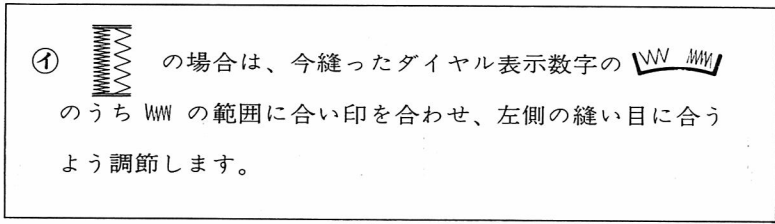 ㋑ の場合は、今縫ったダイヤル表示数字の
のうち の範囲に合い印を合わせ、左側の縫い目に合う
よう調節します。